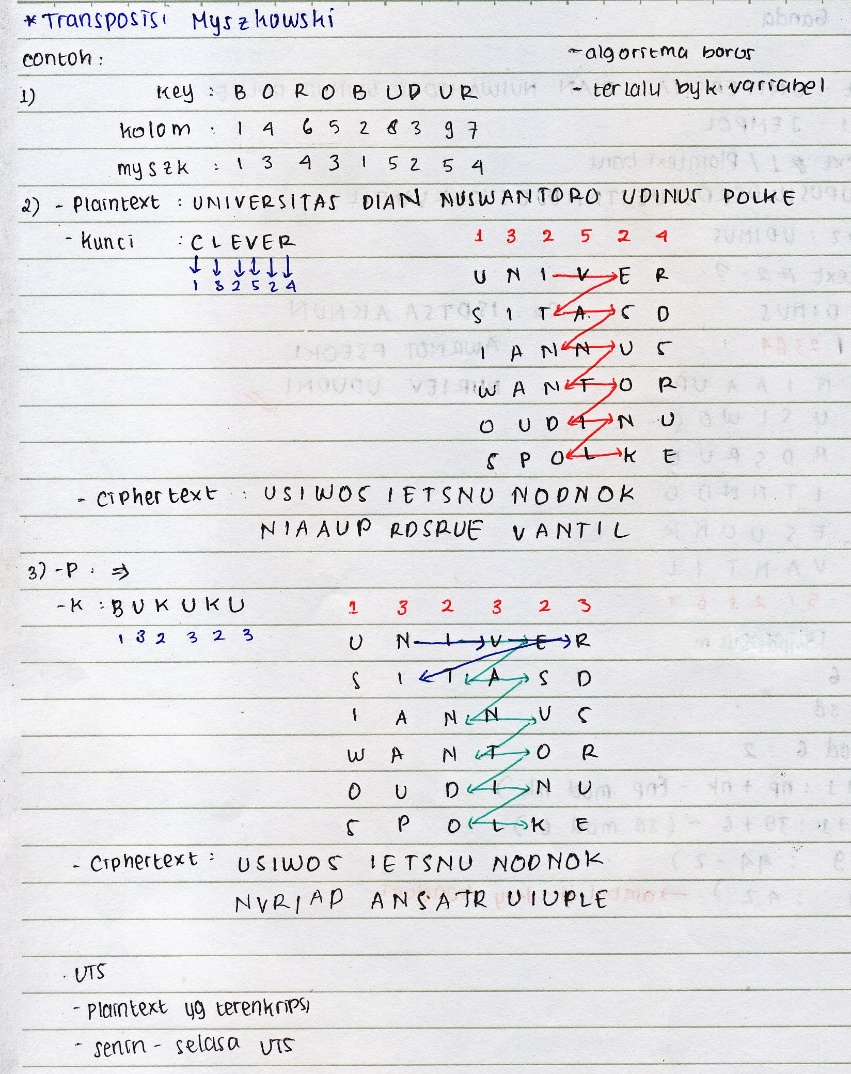 * Transposisi Myszkowski
contoh :
- algoritma boros
1) Key : B O R O B U D U R
- terlalu byk variabel
kolom : 1 4 6 5 2 8 3 9 7
myszk : 1 3 4 3 1 5 2 5 4
2) - Plaintext : UNIVERSITAS DIAN NUSWANTORO UDINUS POLKE
- Kunci : C L E V E R
1 3 2 5 2 4
1 3 2 5 2 4
U N I V E R
S I T A S D
I A N N U S
W A N T O R
O U D I N U
S P O L K E
- Ciphertext : USIWOS IETSNU NODNOK
NIAAUP RDSRUE VANTIL
3) - P : ⇒
- K : B U K U K U
1 3 2 3 2 3
1 3 2 3 2 3
U N I V E R
S I T A S D
I A N N U S
W A N T O R
O U D I N U
S P O L K E
- Ciphertext : USIWOS IETSNU NODNOK
NVRIAD ANSATR UIUPLE
. UTS
- Plaintext yg terenkripsi
- senin - selasa UTS